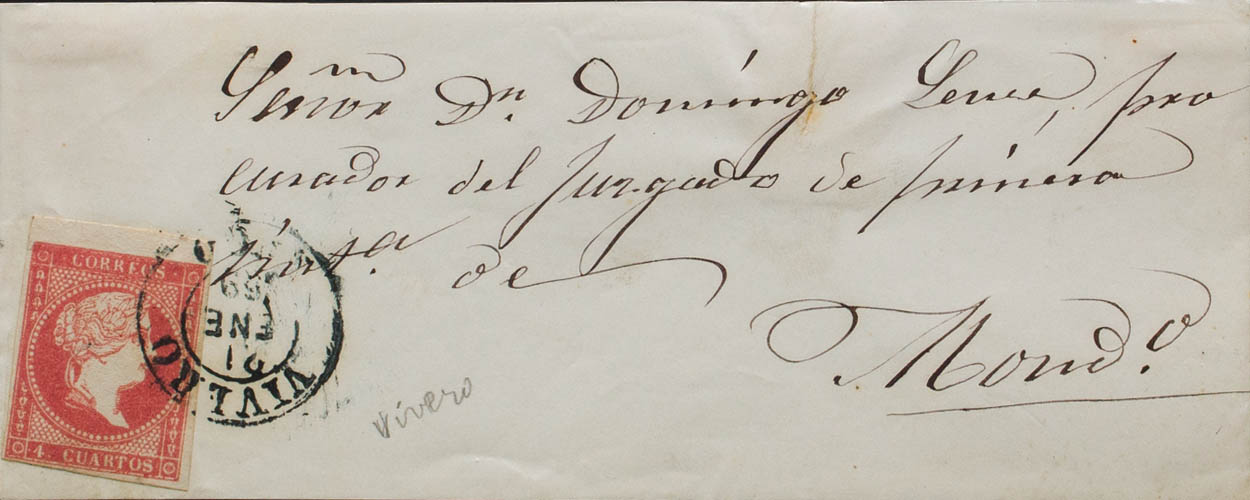 Señor Dn. Domingo
curador del Juzgado de primera
de
Mond.º
CORREOS
4 CUARTOS
VIVERO
ENE
Vivero